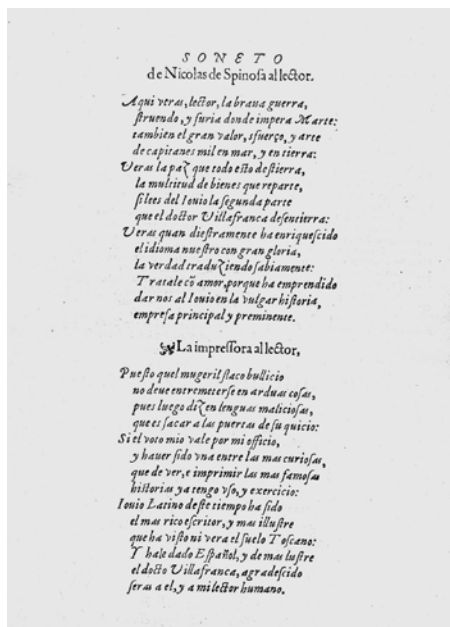 SONETO
de Nicolas de Spinosa al lector.
Aqui veras, lector, la braua guerra,
struendo, y furia donde impera Marte:
tambien el gran valor, sfuerço, y arte
de capitanes mil en mar, y en tierra:
Veras la paz que todo esto destierra,
la multitud de bienes que reparte,
si lees del Iouio la segunda parte
que el doctor Villafranca desentierra:
Veras quan diestramente ha enriquescido
el idioma nuestro con gran gloria,
la verdad traduziendo sabiamente:
Tratale cõ amor, porque ha emprendido
dar nos al Iouio en la vulgar historia,
empresa principal y preminente.
La impressora al lector,
Puesto quel mugeril flaco bullicio
no deue entremeterse en arduas cosas,
pues luego dizen lenguas maliciosas,
que es sacar a las puertas de su quicio:
Si el voto mio vale por mi officio,
y hauer sido vna entre las mas curiosas,
que de ver, e imprimir las mas famosas
historias ya tengo vso, y exercicio:
Iouio Latino deste tiempo ha sido
el mas rico escritor, y mas illustre
que ha visto ni vera el suelo Toscano:
Y ha le dado Español, y de mas lustre
el docto Villafranca, agradescido
seras a el, y a mi lector humano.